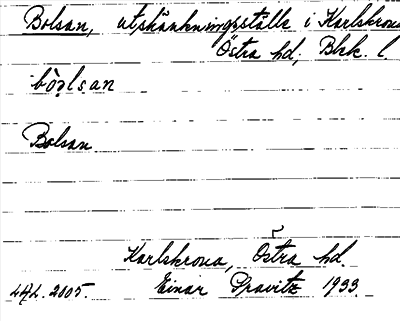 Bolsan, utskänkningsställe i Karlskrona
Östra hd, Blek. l.
bòlsan
Bolsan
Karlskrona, Östra hd.
2005. Einar Gravitz 1933